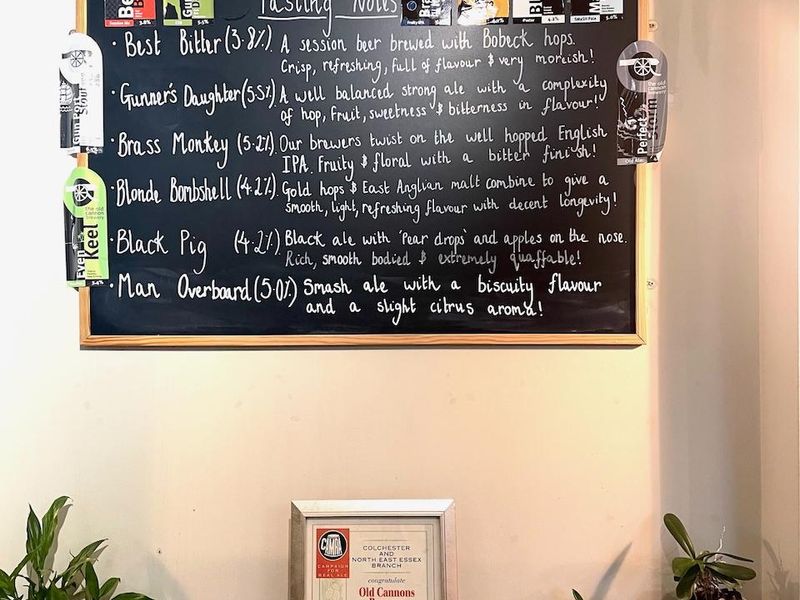 Tasting Notes
· Best Bitter (3.8%) A session beer brewed with Bobeck hops.
Crisp, refreshing, full of flavour & very moreish!
· Gunner's Daughter (5.5%) A well balanced strong ale with a complexity
of hop, fruit, sweetness & bitterness in flavour!
· Brass Monkey (5.2%) Our brewers twist on the well hopped English
IPA. Fruity & floral with a bitter finish!
· Blonde Bombshell (4.2%) Gold hops & East Anglian malt combine to give a
smooth, light, refreshing flavour with decent longevity!
· Black Pig (4.2%) Black ale with 'Pear drops' and apples on the nose.
Rich, smooth bodied & extremely quaffable!
· Man Overboard (5.0%) Smash ale with a biscuity flavour
and a slight citrus aroma!
Gun Port
Stout
the old cannon brewery
Even Keel
Perfect
Old Ale
CAMRA
CAMPAIGN
FOR
REAL ALE
COLCHESTER
AND
NORTH EAST ESSEX
BRANCH
congratulate
Old Cannons